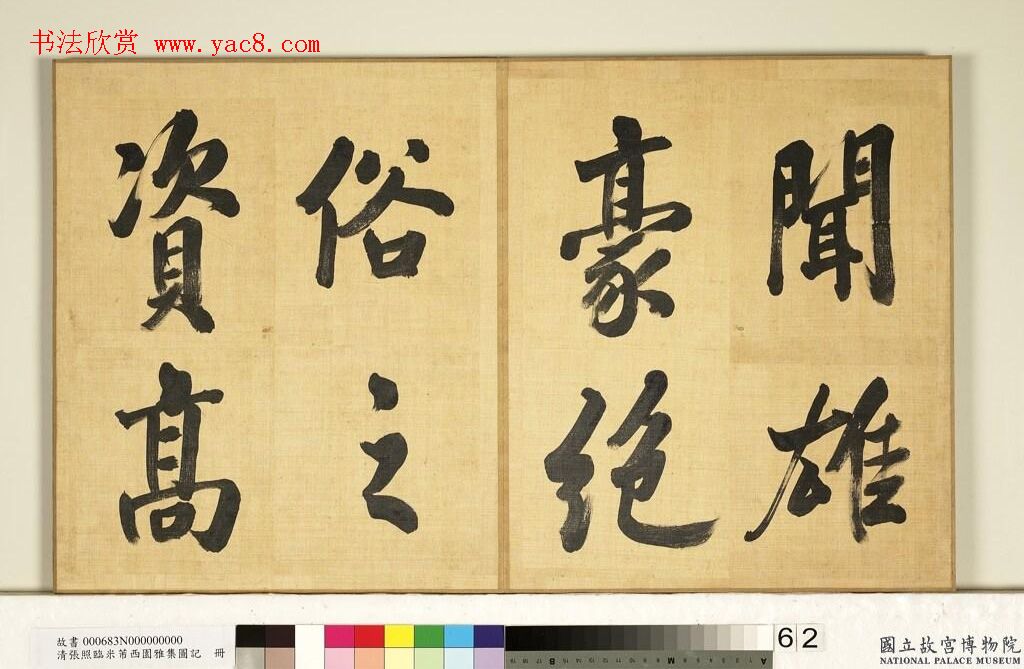 书法欣赏 www.yac8.com
聞雄
豪絕
俗之
資髙
故書 000683N000000000
清張照臨米芾西園雅集圖記 冊
62
國立故宮博物院
NATIONAL PALACE MUSEUM